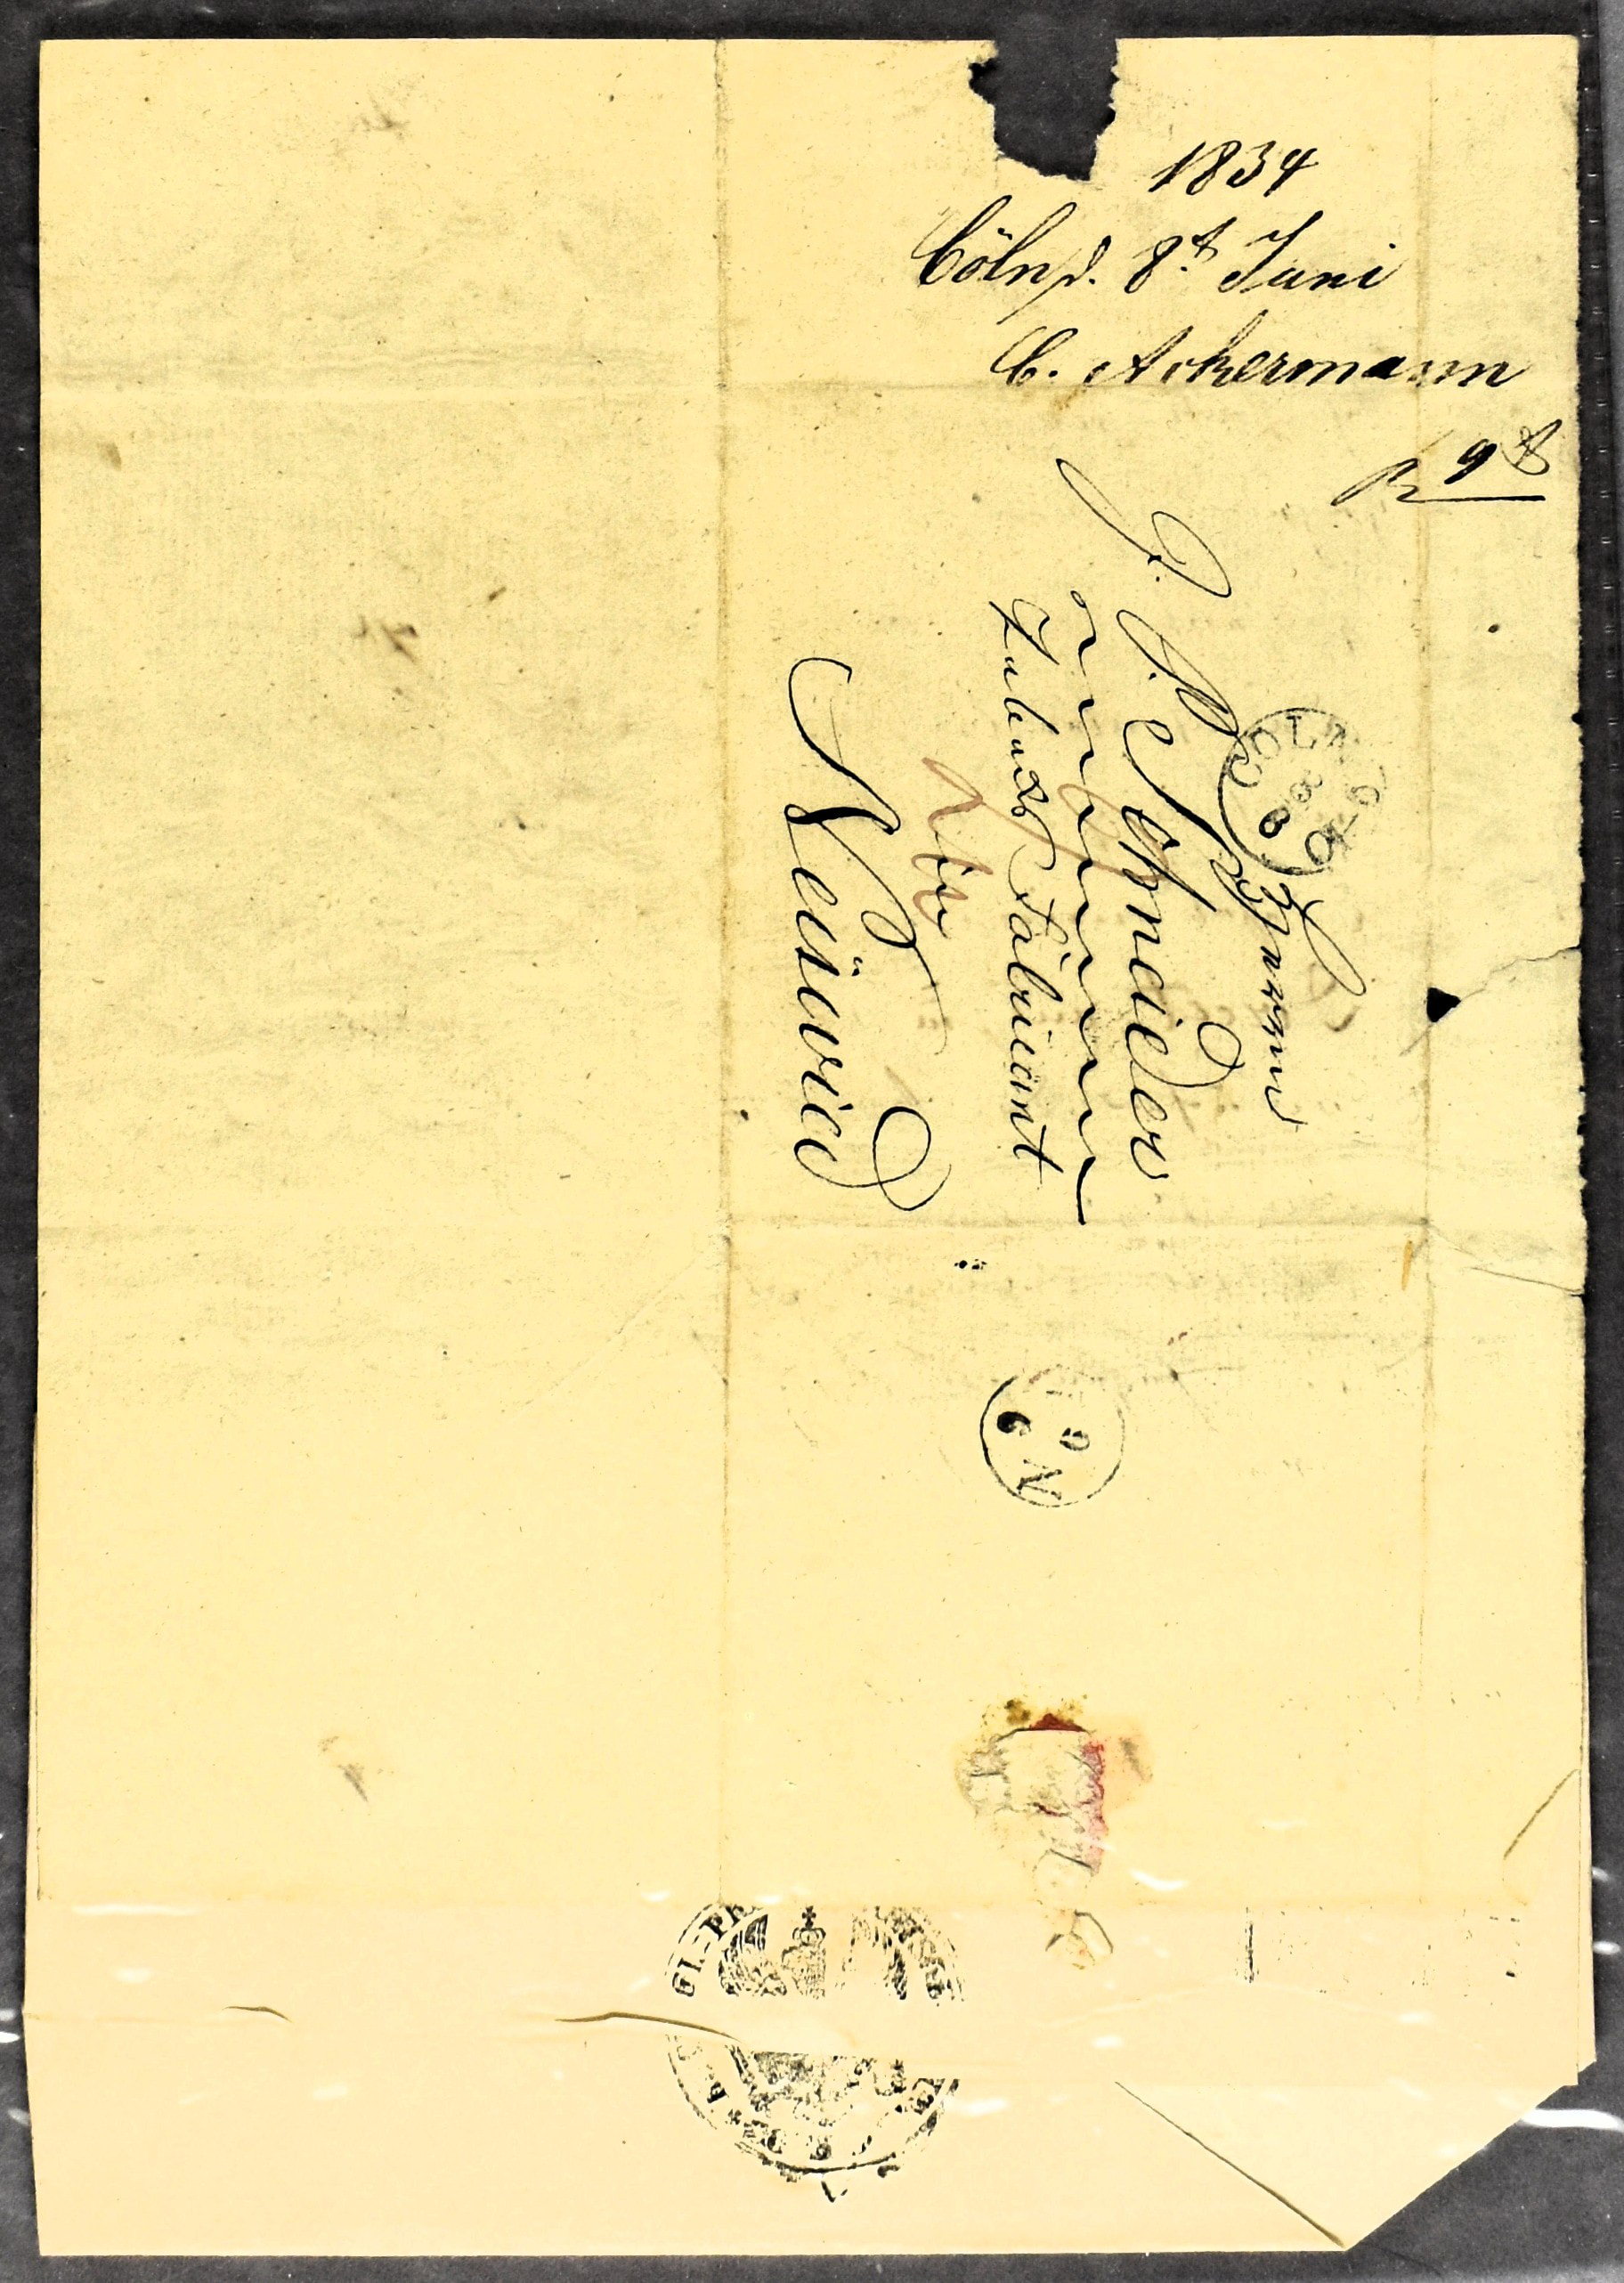 1834
Cöln d. 8t Juni
C. Ackermann
R 9t
Herrn
J. J. Schneider
Tabacks Fabricant
Neuwied
COELN
8 6
N
9 6
GL-PR